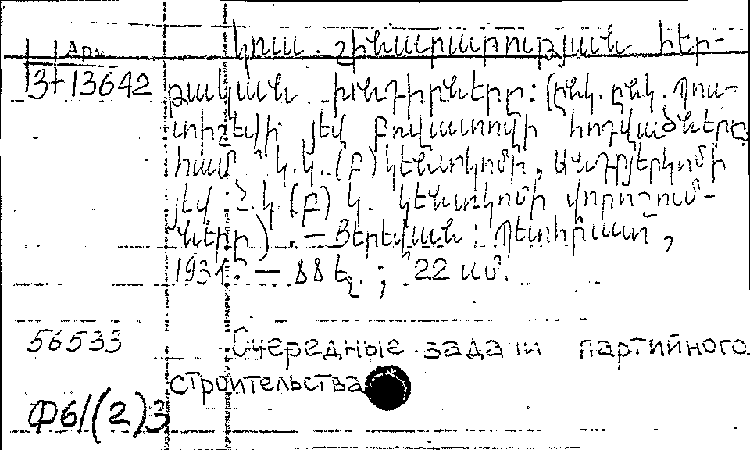 Арм
3+13642
Կուս. շինարարության հեր-
թական խնդիրները: (ընկ. ընկ. Պոս-
տիշեվի յեվ Բուլատովի հոդվածները,
համ. Կ.Կ. (բ) կենտկոմի, Անդրյերկոմի
յեվ Հ.Կ. (բ) Կ. կենտկոմի վորոշում-
ները). — Յերեվան: Պետհրատ,
1931. — 88 եջ. ; 22 սմ.
56533
Очередные задачи партийного
строительства
Ф61(2)3